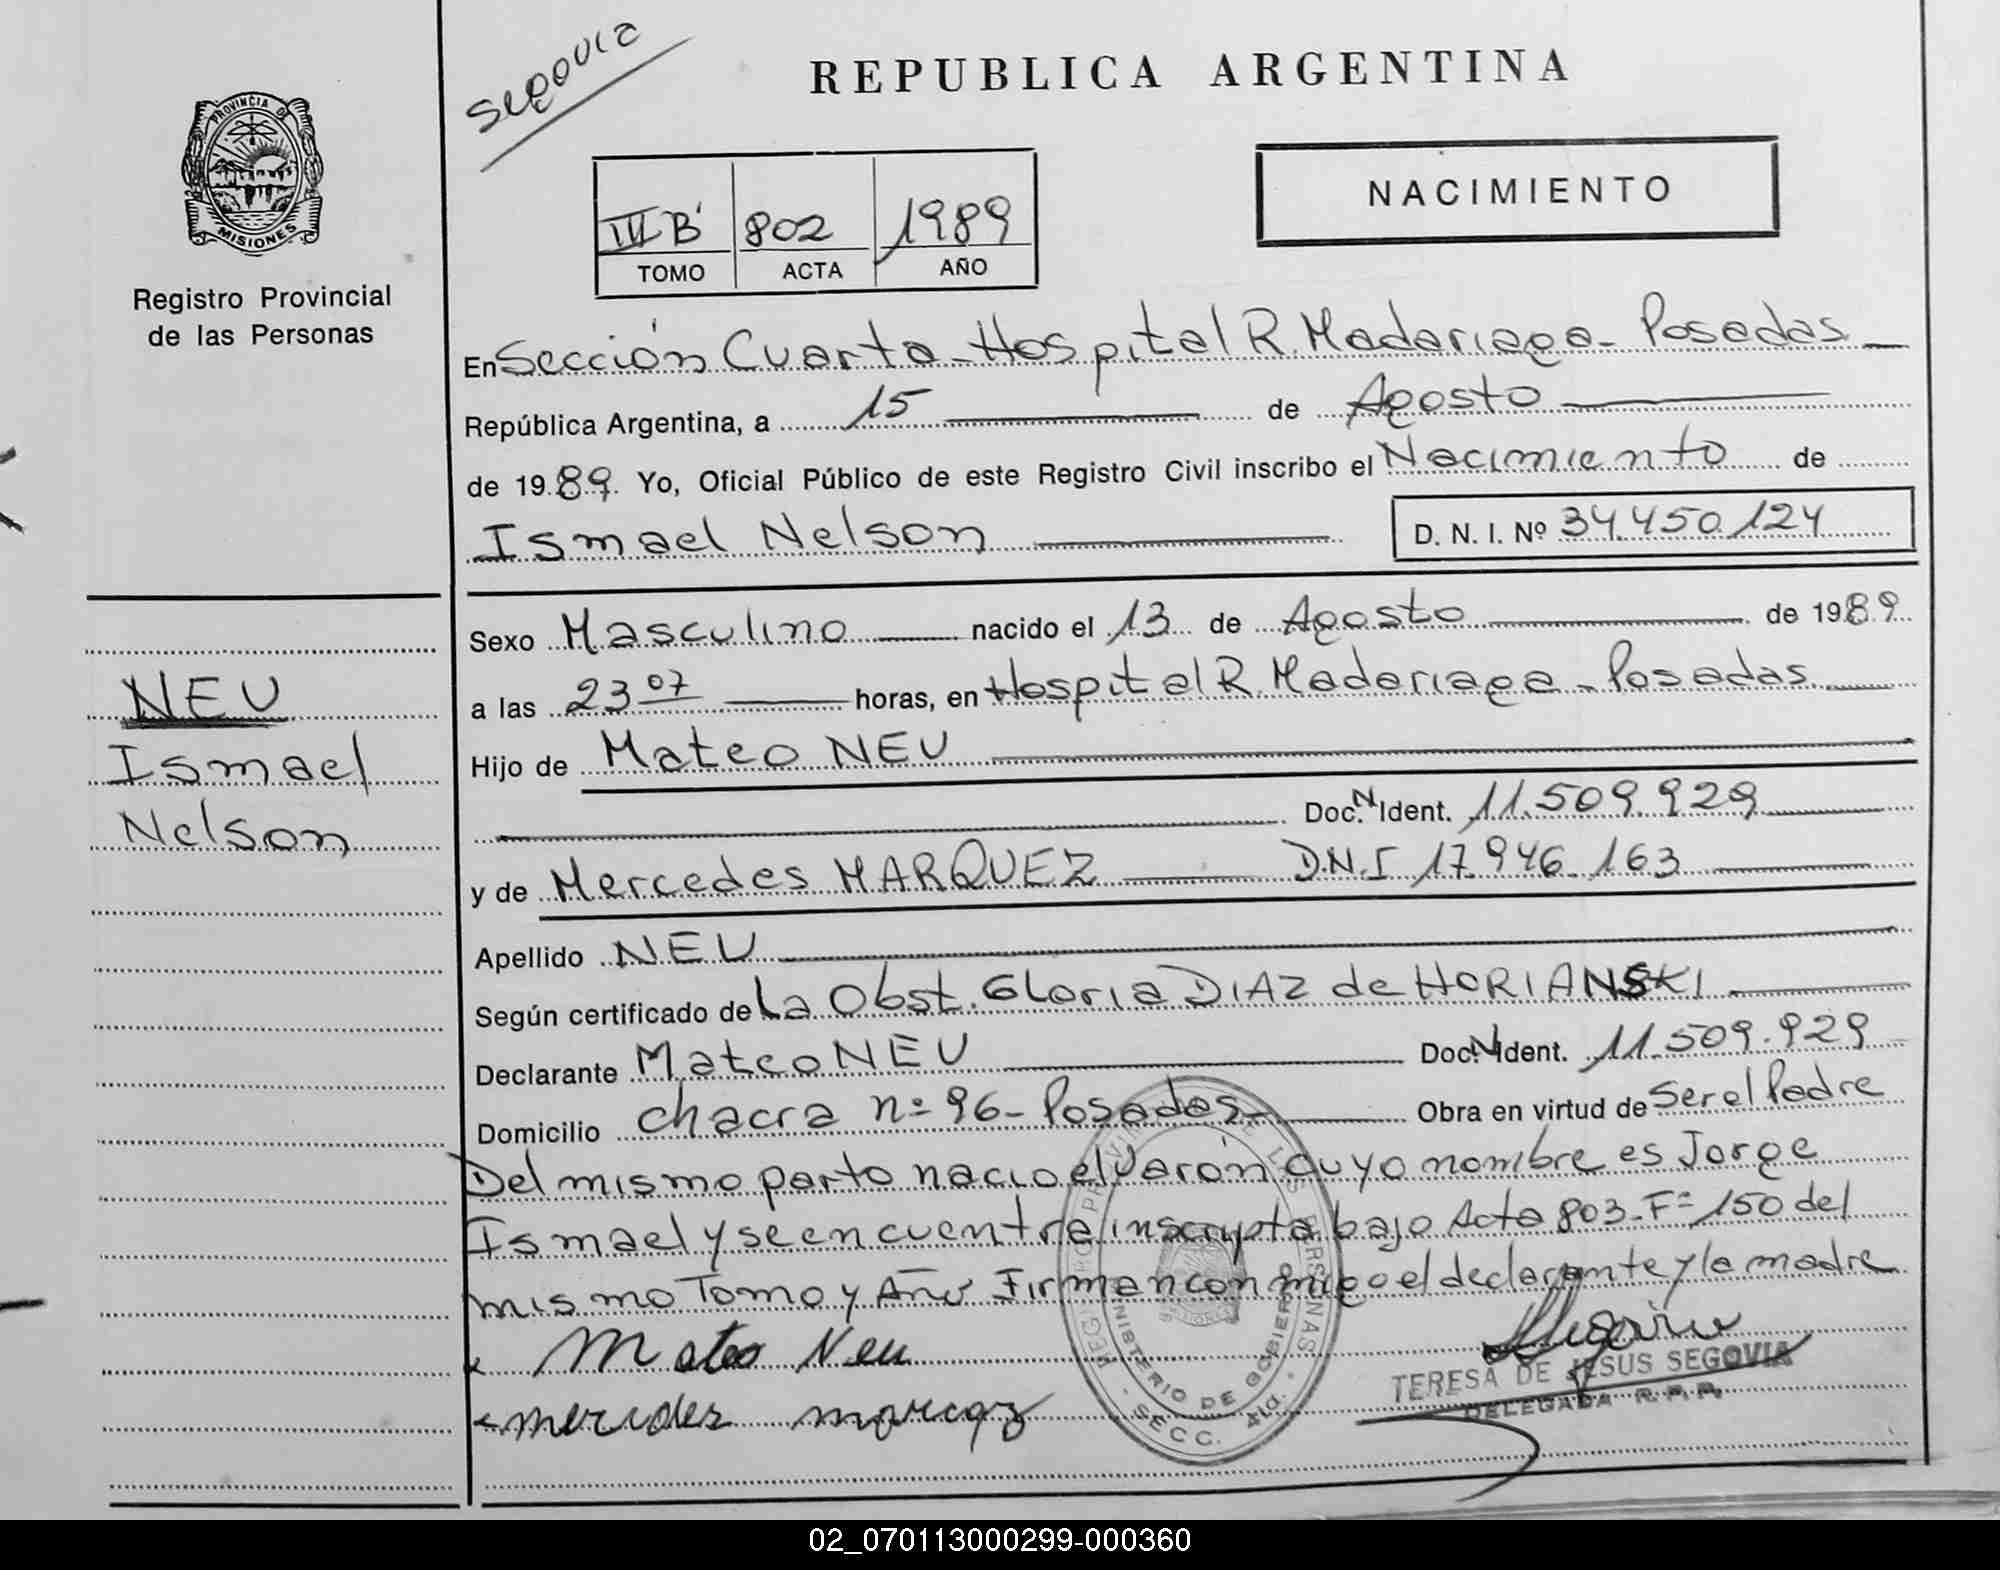 Segovia
REPUBLICA ARGENTINA
PROVINCIA DE MISIONES
III B' 802 1989
TOMO ACTA AÑO
NACIMIENTO
Registro Provincial
de las Personas
En Sección Cuarta - Hospital R. Madariaga - Posadas
República Argentina, a 15 de Agosto
de 1989. Yo, Oficial Público de este Registro Civil inscribo el Nacimiento de
Ismael Nelson D. N. I. Nº 34.450.124
Sexo Masculino nacido el 13 de Agosto de 1989
a las 23 07 horas, en Hospital R. Madariaga - Posadas
NEU
Ismael
Nelson
Hijo de Mateo NEU
Doc. N Ident. 11.509.929
y de Mercedes MARQUEZ D.N.I 17.946.163
Apellido NEU
Según certificado de La Obst. Gloria DIAZ de HORIANSKI
Declarante Mateo NEU Doc. N Ident. 11.509.929
Domicilio chacra nº 96 - Posadas - Obra en virtud de ser el Padre
Del mismo parto nacio el Varón cuyo nombre es Jorge
Ismael y se encuentra inscripta bajo Acta 803 - Fº 150 del
mismo Tomo y Año Firman con migo el declarante y la madre
Mateo Neu
mercedes marcaz
TERESA DE JESUS SEGOVIA
DELEGADA R.P.P.
REGISTRO PROVINCIAL DE LAS PERSONAS
MINISTERIO DE GOBIERNO
SECC. 4ta.
02_070113000299-000360